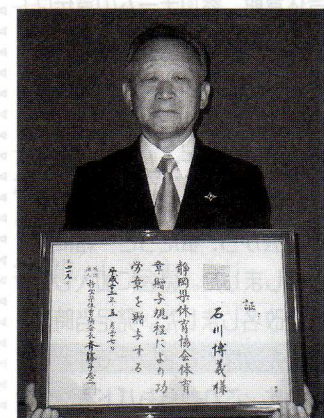 証
石川博義様
静岡県体育協会体育
章贈与規程により功
労章を贈与する
平成十三年五月二十七日
静岡県体育協会会長斉藤斗志二